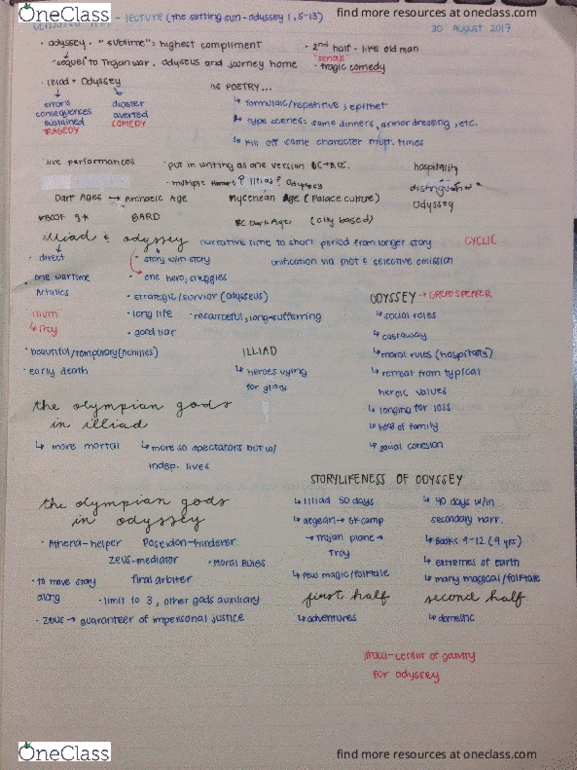 OneClass
find more resources at oneclass.com
- lecture (the setting sun - odyssey 1, 5-13)
30 AUGUST 2017
· odyssey - "sublime": highest compliment
"sequel to Trojan war, odyseus and journey home
· 2nd half - like old man
"senax"
· tragic comedy
· Iliad + Odyssey
errors
consequences
sustained
TRAGEDY
disaster
averted
COMEDY
AS POETRY...
↳ formulaic/repetitive, epithet
↳ type scenes: same dinners, armor dressing, etc.
↳ kill off same character mult. times
live performances
put in writing as one version
· multiple Homers? Illias? Odyssey
hospitality
Odyssey
Dark Ages → Archaic Age
BARD
Mycenean Age (Palace culture)
BC Dark Age
(city based)
illiad & odyssey
narrative time to short period from longer story
CYCLIC
· direct
· story w/in story
unification via plot & selective omission
· one wartime
Achilles
· one hero, struggles
· strategic/survivor (odysseus)
· long life
· resourceful, long-suffering
· good liar
illium
↳ Troy
· beautiful/temporary (Achilles)
· early death
ILLIAD
↳ heroes vying
for glory
ODYSSEY → GREAT SPEAKER
↳ social roles
↳ castaway
↳ moral rules (hospitality)
↳ retreat from typical
heroic values
↳ longing for loss
↳ head of family
↳ social cohesion
the olympian gods
in illiad
↳ more mortal
↳ more so spectators but w/
indep. lives
the olympian gods
in odyssey
· Athena-helper
Poseidon-hinderer
Zeus-mediator
· MORAL RULES
· to move story
along
final arbiter
· limit to 3, other gods auxiliary
· Zeus → guarantee of impersonal justice
STORYLIFENESS OF ODYSSEY
↳ Illiad 50 days
↳ aegean → GK camp
→ Trojan plane →
Troy
↳ few magic/folktale
first half
↳ adventures
↳ 40 days w/in
secondary narr.
↳ Books 9-12 (9 yrs)
↳ extremes of earth
↳ many magical/folktale
second half
↳ domestic
Ithaca-center of gravity
for odyssey
OneClass
find more resources at oneclass.com